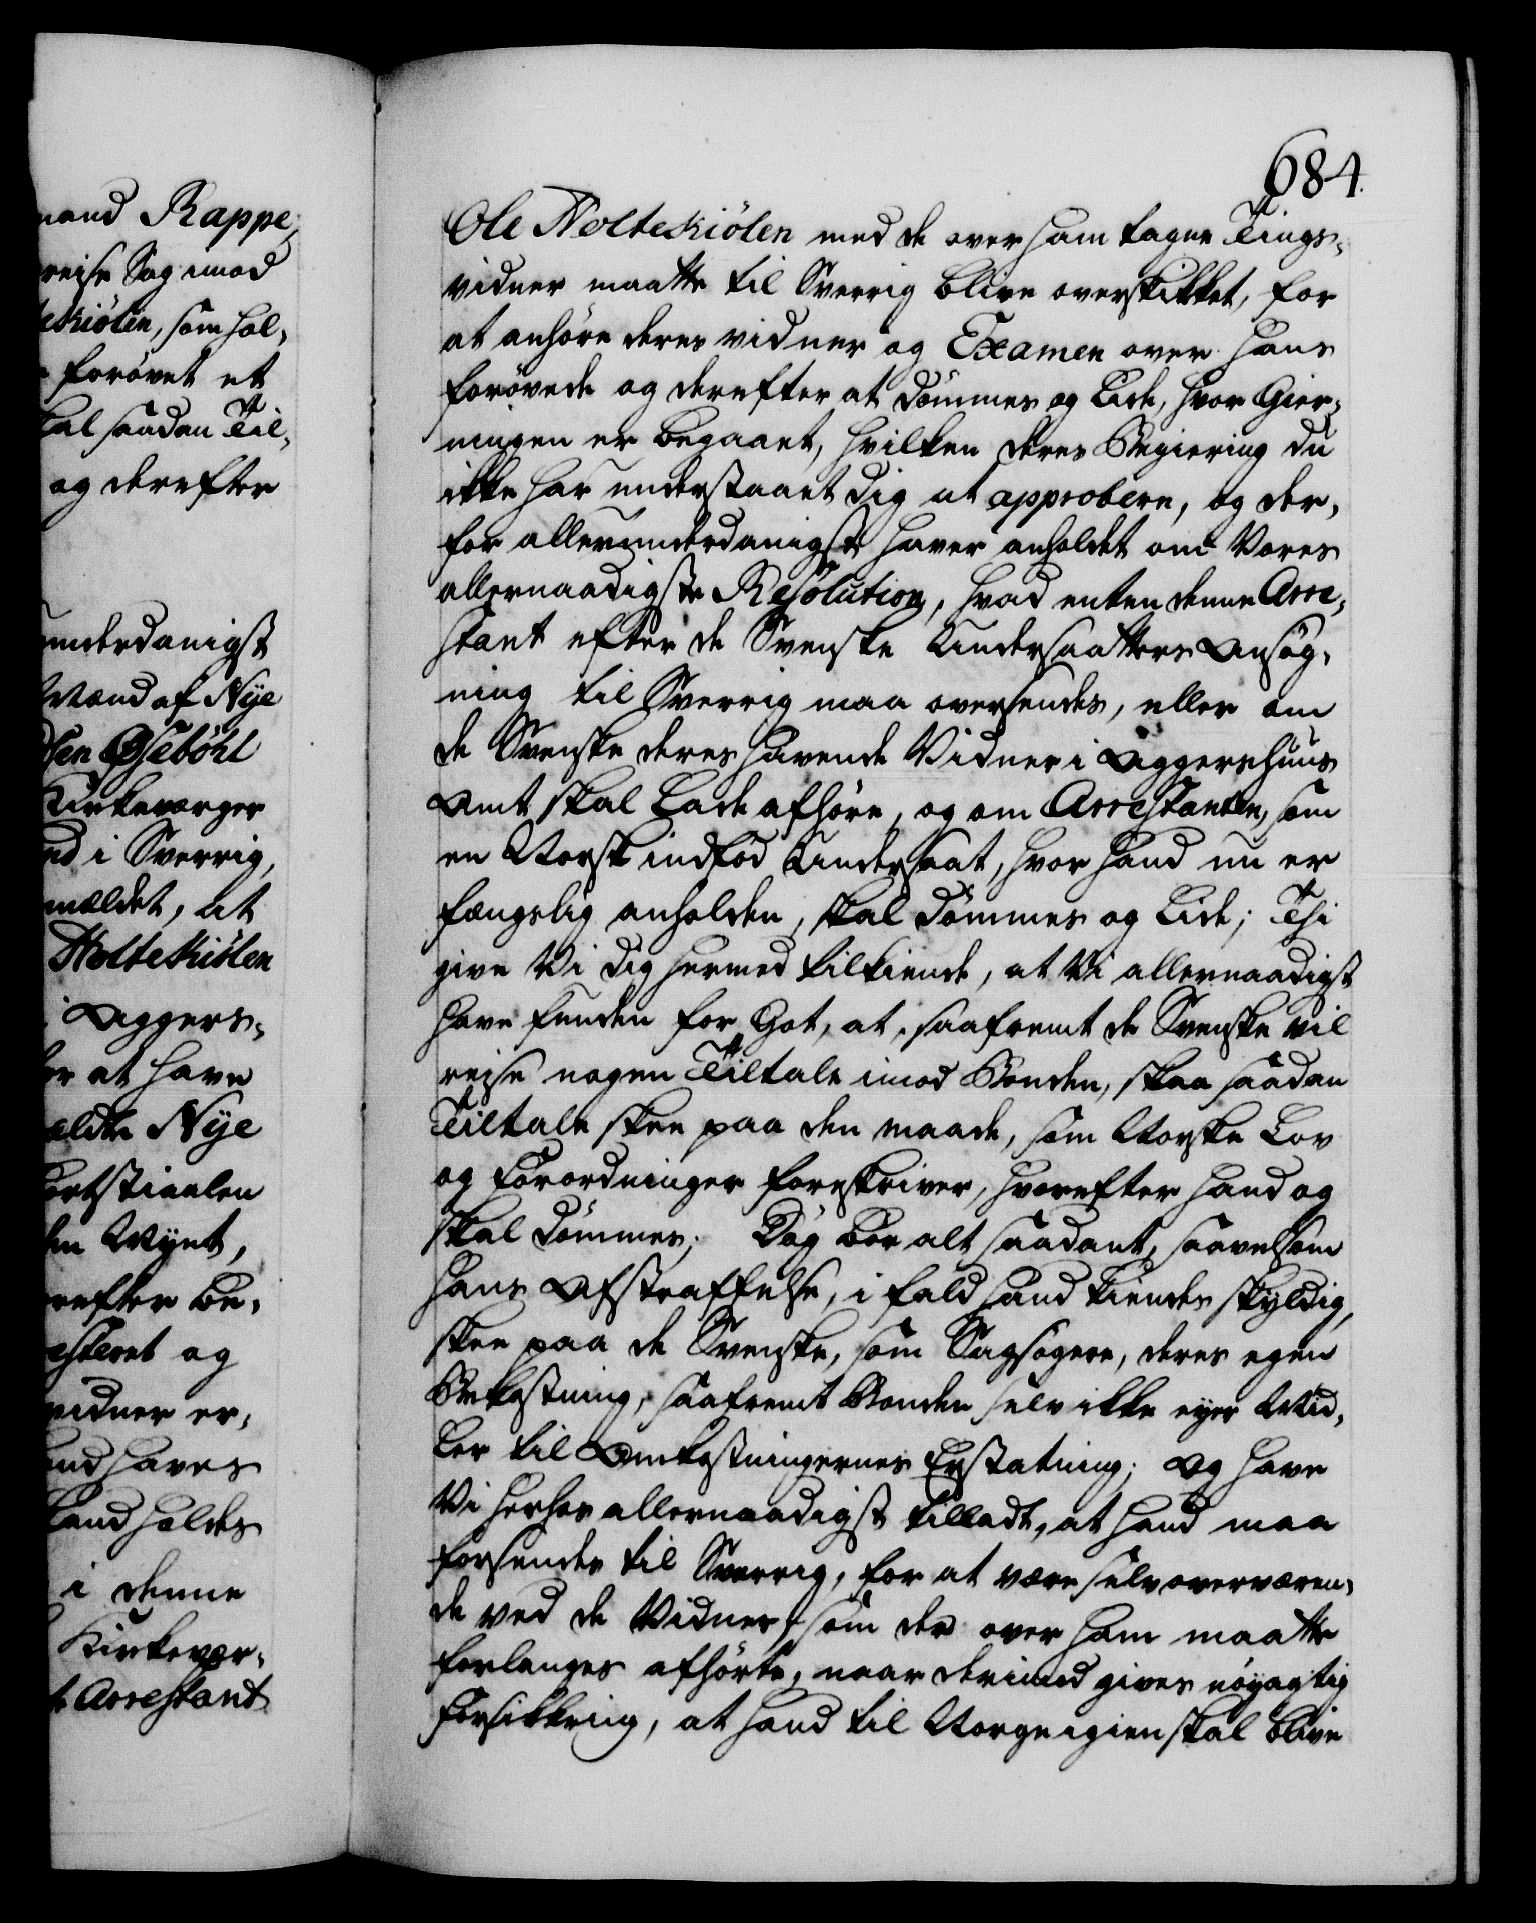 mand Rappe,
reise Sag imod
tekiölen, som hol,
forövet et
kal saadan Til,
og derefter
underdanigst
Mand af Nye
Kirkeværger
i Sverrig,
mældet, at
Holtekiölen
i Aggers,
at have
ældte Nye
ortstiaalen
Mynt,
refter be,
esteret og
vidner er,
haves
hand holdes
i denne
Kirkevær,
t Arrestant
684.
Ole Holtekiölen med de over ham tagne Tings,
vidner maatte til Sverrig blive overskikket, for
at anhöre deres vidner og Examen over hans
forövede og derefter at dömmes og lide, hvor Gier,
ningen er begaaet, hvilken deres Begiering du
ikke har understaaet dig at approbere, og der,
for allerunderdanigst haver anholdet om Vores
allernaadigste Resolution, hvad enten denne Arre,
stant efter de Svenske Undersaatters Ansög,
ning til Sverrig maa oversendes, eller om
de Svenske deres havende Vidner i Aggershuus
Amt skal lade afhöre, og om Arrestanten, som
en Norsk indfød Undersaat, hvor hand nu er
fængslig anholden, skal dömmes og lide; Thi
give Vi dig hermed tilkiende, at Vi allernaadigst
have funden for Got, at, saafremt de Svenske vil
rejse nogen Tiltale imod Bonden, skaa saadan
Tiltale skee paa den maade, som Norske Lov
og Forordninger foreskriver, hvorefter hand og
skal dömmes; Dog bör alt saadant, saavelsom
hans Afstraffelse, i fald hand kiendes skyldig,
skee paa de Svenske, som Sagsögere, deres egen
Bekostning, saafremt Bonden selv ikke ejer Mid,
ler til Omkostningernes Erstatning; Og have
Vi herhos allernaadigst tilladt, at hand maa
forsendes til Sverrig, for at være selv overværen,
de ved de Vidner, som der over ham maatte
forlanges afhörte, naar derimod gives nöyagtig
Forsikkring, at hand til Norge igien skal blive